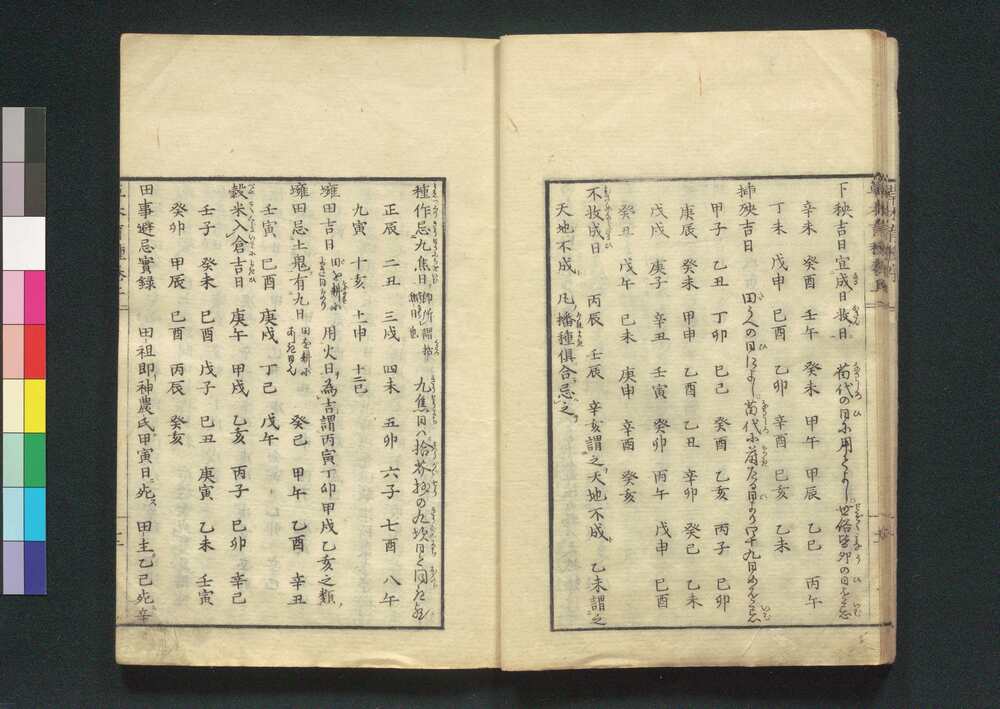 下秧吉日宜成日收日 苗代の日に用てよし世俗
辛未 癸酉 壬午 癸未 甲午 甲辰 乙巳 丙午
丁未 戊申 己酉 乙卯 辛酉 己亥 乙未
挿秧吉日 田うへの日によし苗代に蒔たる日より四十九日めを忌
甲子 乙丑 丁卯 己巳 癸酉 乙亥 丙子 己卯
庚辰 癸未 甲申 乙酉 乙丑 辛卯 癸巳 乙未
戊戌 庚子 辛丑 壬寅 癸卯 丙午 戊申 己酉
癸丑 戊午 己未 庚申 辛酉 癸亥
不收成日 丙辰 壬辰 辛亥謂之天地不成 乙未謂之
天地不成 凡播種俱合忌之
種作忌九焦日 九焦日ハ拾芥抄の九坎日と同
正辰 二丑 三戌 四未 五卯 六子 七酉 八午
九寅 十亥 十一申 十二巳
壅田吉日 用火日為吉謂丙寅丁卯甲戌乙亥之類
壅田忌土鬼有九日 癸巳 甲午 乙酉 辛丑
壬寅 己酉 庚戌 丁巳 戊午
穀米入倉吉日 庚午 甲戌 乙亥 丙子 己卯 辛巳
壬子 癸未 己酉 戊子 己丑 庚寅 乙未 壬寅
癸卯 甲辰 己酉 丙辰 癸亥
田事避忌實録 田祖即神農氏甲寅日死 田主乙巳死辛